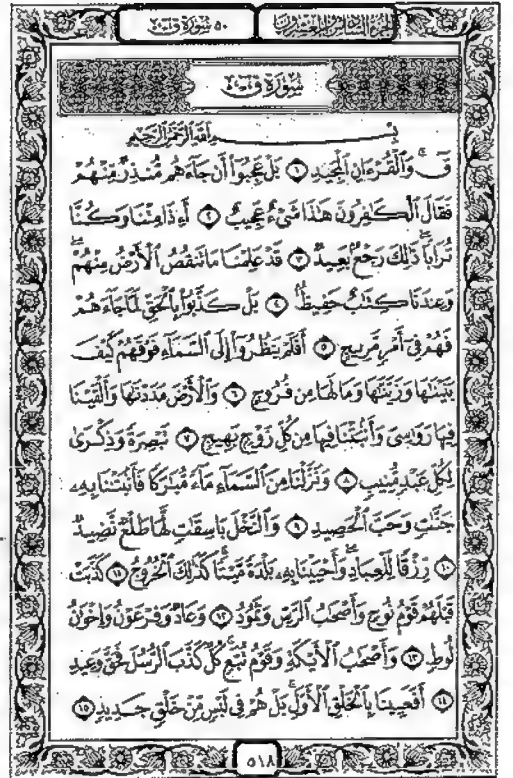 الجزء السادس والعشرون
٥٠ سورة ق
سُورَةُ ق
بِسْمِ ٱللَّهِ ٱلرَّحْمَٰنِ ٱلرَّحِيمِ
قٓ ۚ وَٱلْقُرْءَانِ ٱلْمَجِيدِ ١ بَلْ عَجِبُوٓا۟ أَن جَآءَهُم مُّنذِرٌ مِّنْهُمْ
فَقَالَ ٱلْكَٰفِرُونَ هَٰذَا شَىْءٌ عَجِيبٌ ٢ أَءِذَا مِتْنَا وَكُنَّا
تُرَابًا ۖ ذَٰلِكَ رَجْعٌۢ بَعِيدٌ ٣ قَدْ عَلِمْنَا مَا تَنقُصُ ٱلْأَرْضُ مِنْهُمْ ۖ
وَعِندَنَا كِتَٰبٌ حَفِيظٌۢ ٤ بَلْ كَذَّبُوا۟ بِٱلْحَقِّ لَمَّا جَآءَهُمْ
فَهُمْ فِىٓ أَمْرٍ مَّرِيجٍ ٥ أَفَلَمْ يَنظُرُوٓا۟ إِلَى ٱلسَّمَآءِ فَوْقَهُمْ كَيْفَ
بَنَيْنَٰهَا وَزَيَّنَّٰهَا وَمَا لَهَا مِن فُرُوجٍ ٦ وَٱلْأَرْضَ مَدَدْنَٰهَا وَأَلْقَيْنَا
فِيهَا رَوَٰسِىَ وَأَنۢبَتْنَا فِيهَا مِن كُلِّ زَوْجٍۭ بَهِيجٍ ٧ تَبْصِرَةً وَذِكْرَىٰ
لِكُلِّ عَبْدٍ مُّنِيبٍ ٨ وَنَزَّلْنَا مِنَ ٱلسَّمَآءِ مَآءً مُّبَٰرَكًا فَأَنۢبَتْنَا بِهِۦ
جَنَّٰتٍ وَحَبَّ ٱلْحَصِيدِ ٩ وَٱلنَّخْلَ بَاسِقَٰتٍ لَّهَا طَلْعٌ نَّضِيدٌ
١٠ رِّزْقًا لِّلْعِبَادِ ۖ وَأَحْيَيْنَا بِهِۦ بَلْدَةً مَّيْتًا ۚ كَذَٰلِكَ ٱلْخُرُوجُ ١١ كَذَّبَتْ
قَبْلَهُمْ قَوْمُ نُوحٍ وَأَصْحَٰبُ ٱلرَّسِّ وَثَمُودُ ١٢ وَعَادٌ وَفِرْعَوْنُ وَإِخْوَٰنُ
لُوطٍ ١٣ وَأَصْحَٰبُ ٱلْأَيْكَةِ وَقَوْمُ تُبَّعٍ ۚ كُلٌّ كَذَّبَ ٱلرُّسُلَ فَحَقَّ وَعِيدِ
١٤ أَفَعَيِينَا بِٱلْخَلْقِ ٱلْأَوَّلِ ۚ بَلْ هُمْ فِى لَبْسٍ مِّنْ خَلْقٍ جَدِيدٍ ١٥
٥١٨